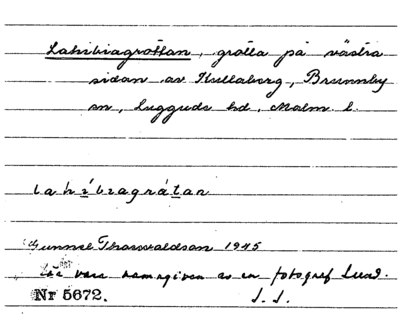 Lahibiagrottan, grotta på västra
sidan av Kullaberg, Brunnby
sn, Luggude hd, Malm. l.
lahíbiagråtan
Gunnel Thorwaldson 1945
lär vara namngiven av en fotograf Lund.
Nr 5672. S. S.